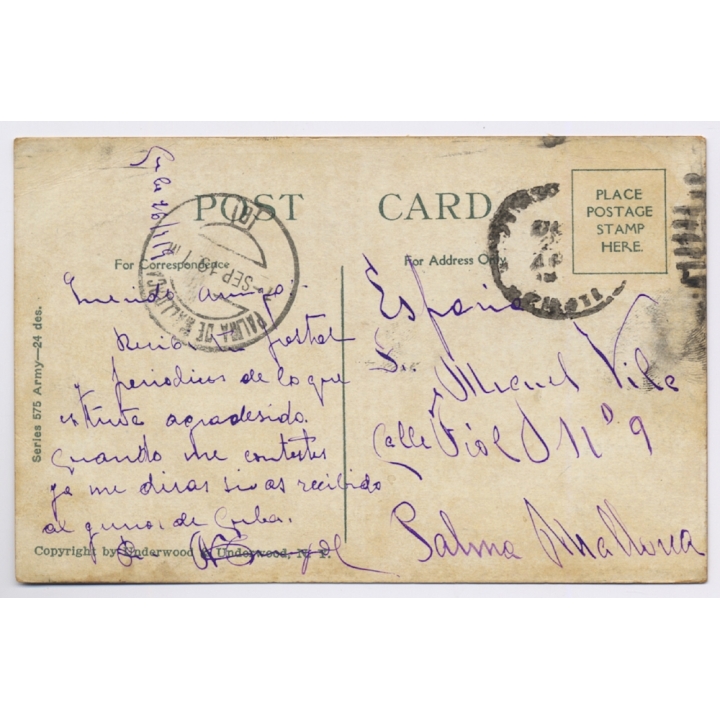 POST CARD
For Correspondence
For Address Only
PLACE
POSTAGE
STAMP
HERE.
PALMA DE MALLORCA
SEP
Series 575 Army—24 des.
amigo:
postal
y periodicos de lo que
estuve agradesido.
Cuando me contestes
ya me diras si as recibido
algunos de Cuba.
Copyright by Underwood & Underwood, N. Y.
España
Sr.
Miguel Vila
Calle Fiol Nº 9
Palma Mallorca